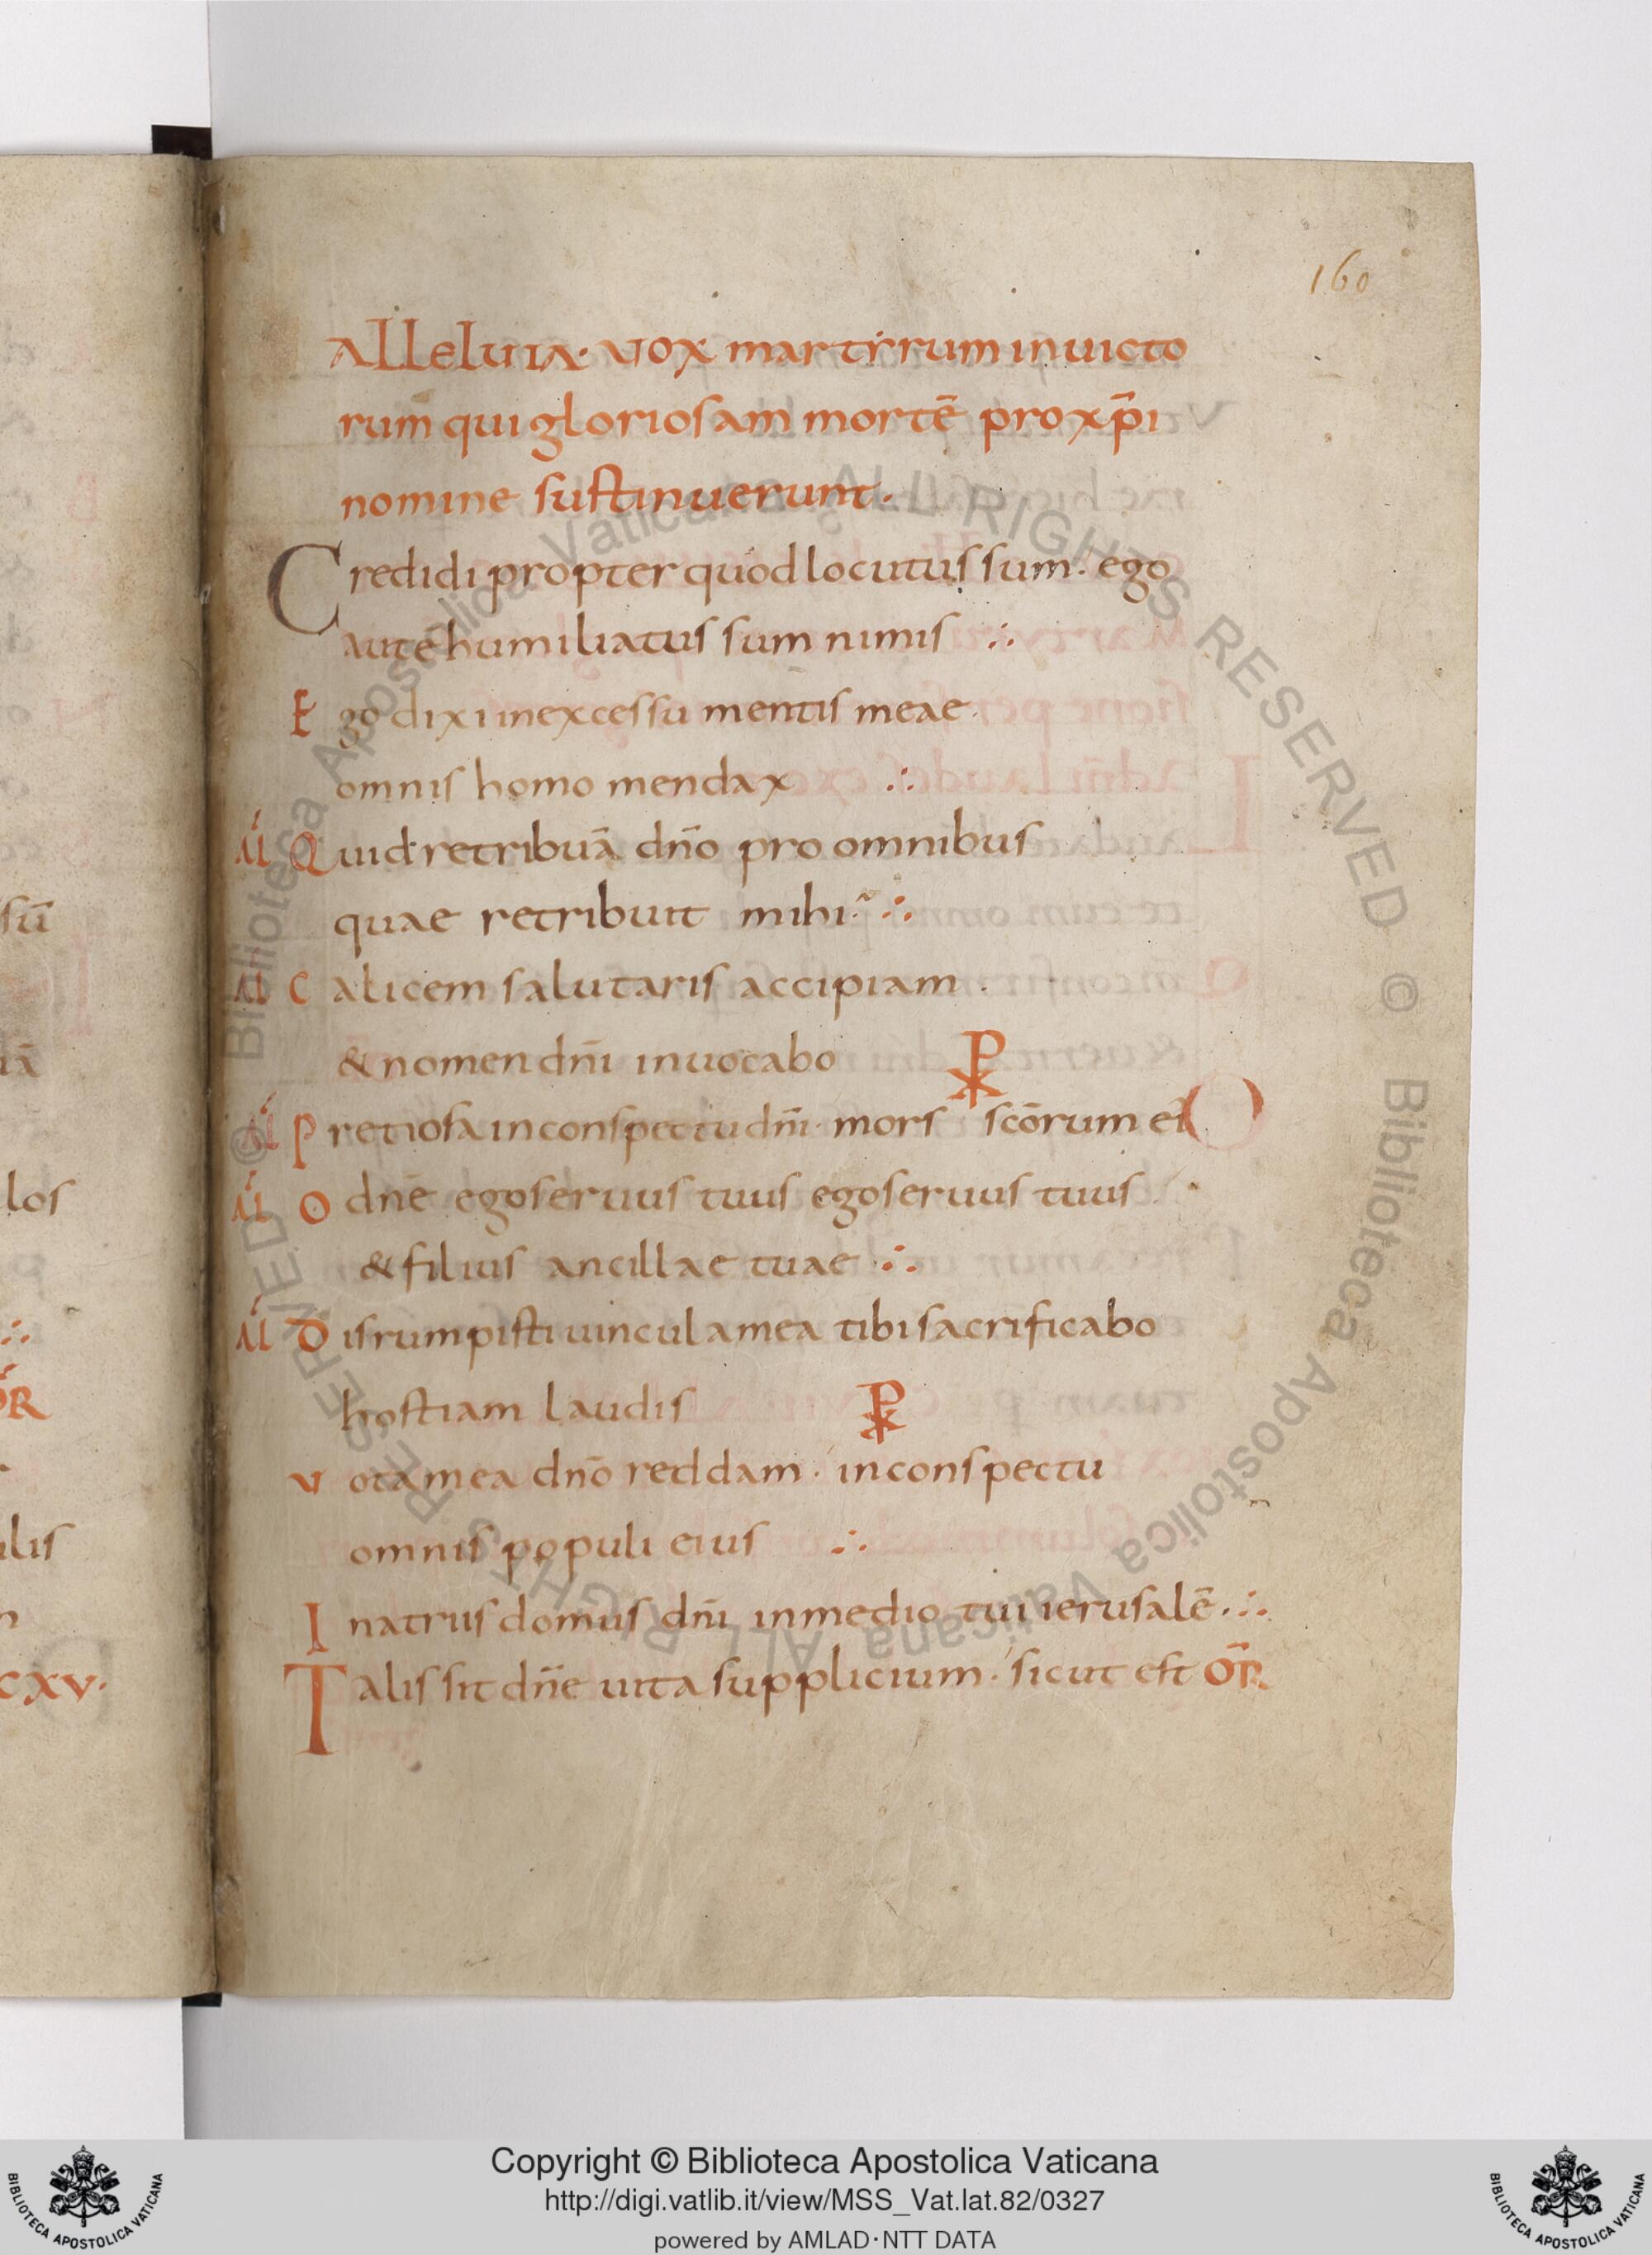 160
Alleluia. vox martyrum inuicto
rum qui gloriosam mortē pro xp̄i
nomine sustinuerunt.
Credidi propter quod locutus sum. ego
autē humiliatus sum nimis ∴
Ego dixi in excessu mentis meae.
omnis homo mendax ∴
Al Quid retribuā dn̄o pro omnibus
quae retribuit mihi ∴
Al Calicem salutaris accipiam.
& nomen dn̄i inuocabo ⳩
Al Pretiosa in conspectu dn̄i. mors scōrum ei
Al O dn̄e ego seruus tuus ego seruus tuus
& filius ancillae tuae ∴
Al Disrumpisti uincula mea tibi sacrificabo
hostiam laudis ⳩
Vota mea dn̄o reddam. in conspectu
omnis populi eius ∴
In atriis domus dn̄i in medio tui ierusalē. ∴
Talis sit dn̄e uita supplicium. sicut est OR̄
sū
uā
los
∴
OR
ulis
cxv.
Biblioteca Apostolica Vaticana ALL RIGHTS RESERVED © Biblioteca Apostolica Vaticana ALL RIGHTS RESERVED ©
Copyright © Biblioteca Apostolica Vaticana
http://digi.vatlib.it/view/MSS_Vat.lat.82/0327
powered by AMLAD·NTT DATA
BIBLIOTECA APOSTOLICA VATICANA
BIBLIOTECA APOSTOLICA VATICANA